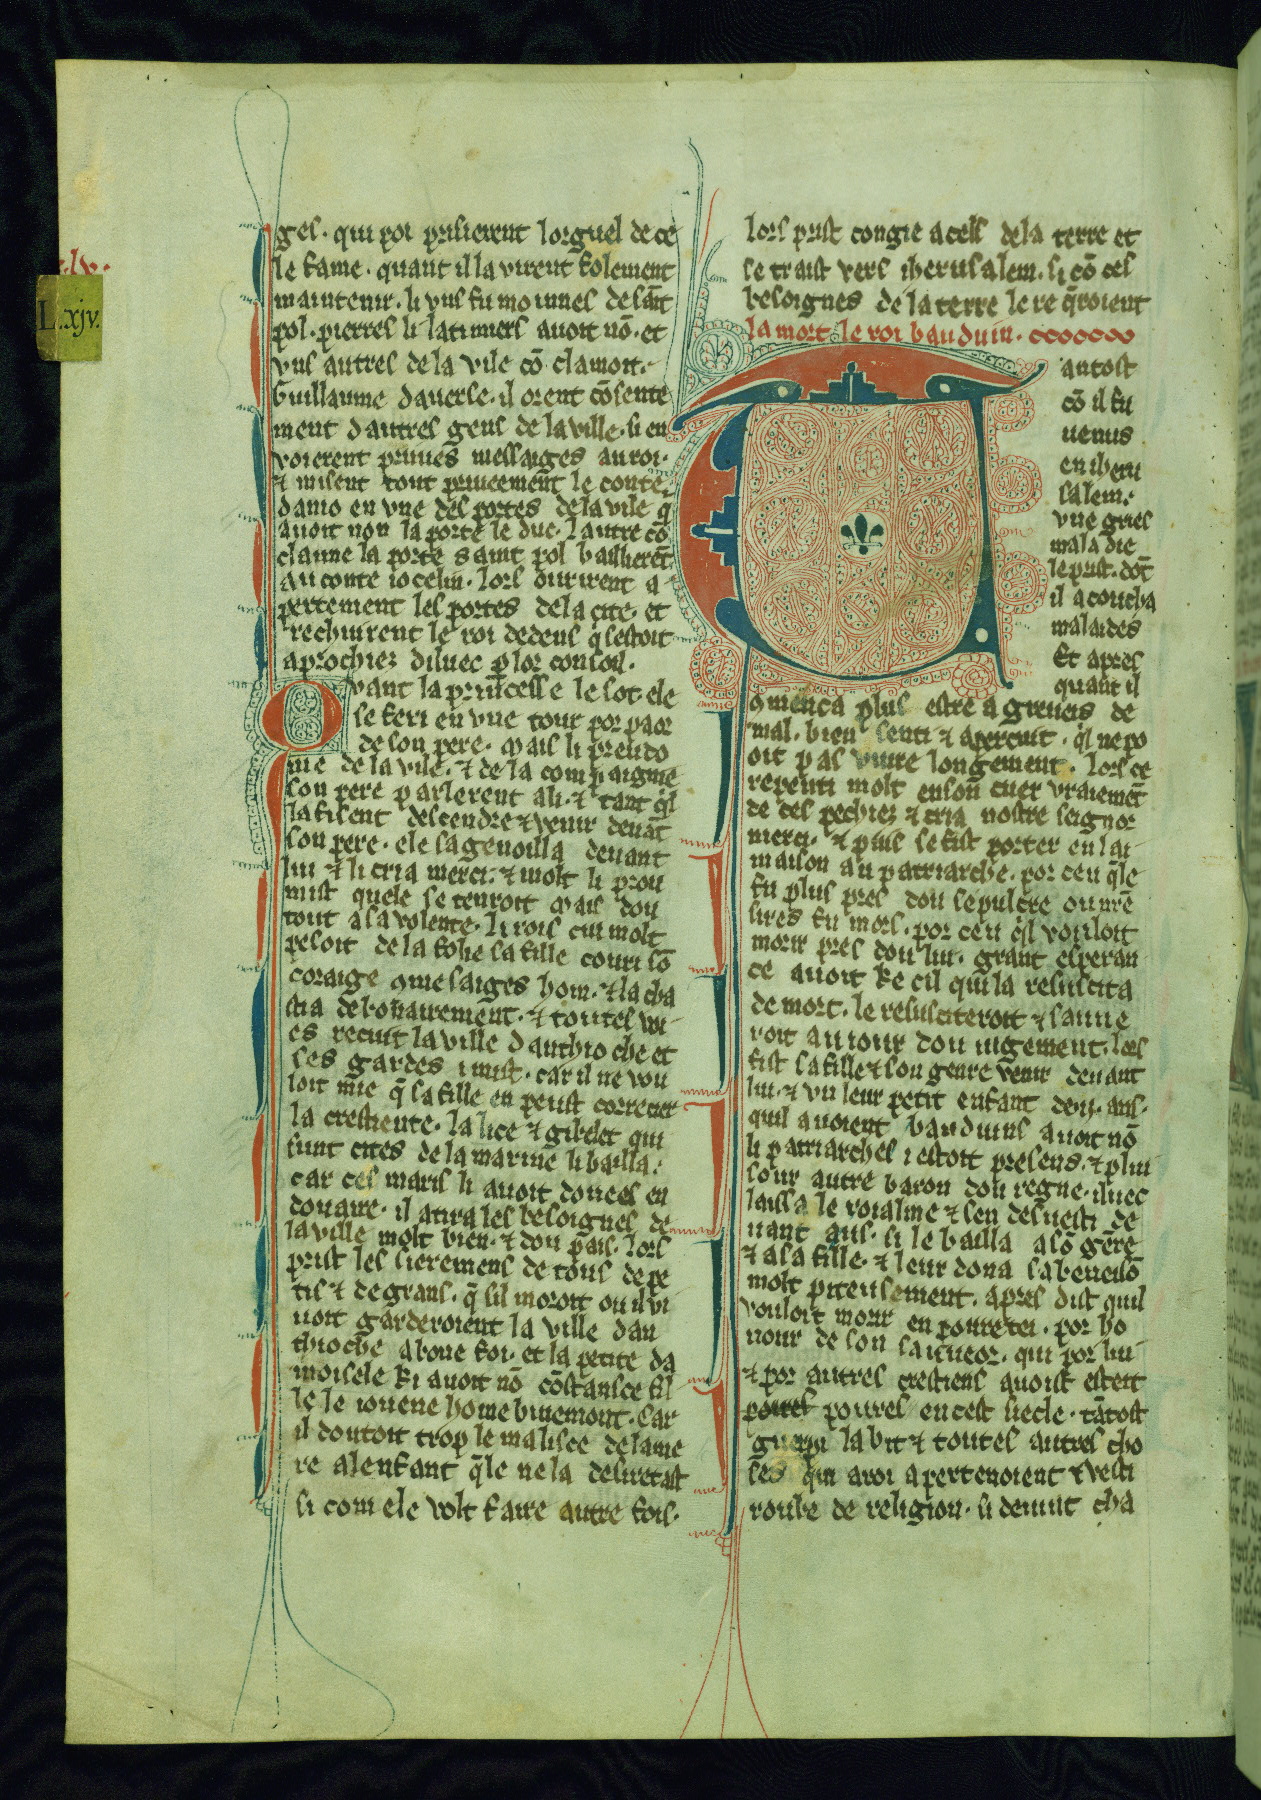 .lv.
L.xjv.
ges. qui poi prisierent lorguel de ce
le fame. quant il la virent folement
maintenir. li vns fu moinnes de saint
pol. pierres li latimiers auoit nō. et
vns autres de la vile cō clamoit.
Guillaume dauerse. il orent cōsente
ment dautres gens de la ville. si en
voierent priuēs messaiges au roi.
⁊ misent tout priueement le conte
damo en vne des portes de la vile q̄
auoit non la porte le duc. lautre cō
claime la porte saint pol baillierēt
au conte iocelin. lors ourirent a
pertement les portes de la cite. et
rechiurent le roi dedens q̄ sestoit
aprochiez diluec p lor conseil.
Quant la princesse le sot. ele
se feri en vne tour por paor
de son pere. Mais li preudo
me de la vile. ⁊ de la compaignie
son pere parlerent a li. ⁊ tant q̄l
la fisent descendre ⁊ venir deuāt
son pere. ele sagenoilla deuant
lui ⁊ li cria merci. ⁊ molt li prou
mist quele se tenroit Mais dou
tout a sa volente. li rois cui molt
pesoit de la folie sa fille couri sō
coraige 9me saiges hom. ⁊ la cha
stia debonairement. ⁊ toutes voi
es recuit la ville danthioche et
ses gardes i mist. car il ne vou
loit mie q̄ sa fille en peust correcier
la crestiente. la lice ⁊ gibelet qui
sunt cites de la marine li bailla.
car ces maris li auoit donees en
douaire. il atira les besoignes de
la ville molt bien. ⁊ dou pais. lors
prist les sieremens de tous de pe
tis ⁊ de grans. q̄ sil moroit ou il vi
uoit garderoient la ville dan
thioche a bone foi. et la petite da
moisele ki auoit nō cōstansce fil
le le iouene home buiemont. Car
il doutoit trop le malisce de la me
re a lenfant q̄le ne la desiretast
si com ele volt faire autre fois.
lors prist congie a cels de la terre et
se traist vers iherusalem. si cō ces
besoignes de la terre le reqroient
la mort le roi bauduin.
Tantost
cō il fu
uenus
en iheru
salem.
vne gries
maladie
le prist. dōt
il a coucha
malaides
Et apres
quant il
9menca plus estre a greueis de
mal. bien senti ⁊ apercuit. q̄l ne po
oit pas viure longement. lors ce
repenti molt en son cuer vraiemēt
de ces pechiez ⁊ cria nostre seignor
merci. ⁊ puis se fist porter en lai
maison au patriarche. por ceu q̄le
fu plus pres dou sepulcre ou nrē
sires fu mors. por ceu q̄il vouloit
morir pres dou liu. grant esperan
ce auoit ke cil qui la resuscita
de mort. le resusciteroit ⁊ sauue
roit au iour dou iugement. lors
fist sa fille ⁊ son genre venir deuant
lui. ⁊ vn leur petit enfant de .ij. ans.
quil auoient bauduins auoit nō
li patriarches i estoit presens. ⁊ plui
sour autre baron dou regne. iluec
laissa le roialme ⁊ sen desuesti de
uant aus. si le bailla a sō gēre
⁊ a sa fille. ⁊ leur dona sa beneicō
molt piteusement. apres dist quil
vouloit morir en pourete. por ho
nour de son saiueor. qui por lui
⁊ por autres crestiens auoist esteit
poures poures en cest siecle. tātost
guerpi labit ⁊ toutes autres cho
ses qui a roi apertenoient ⁊ vesti
roube de religion. si deuint cha